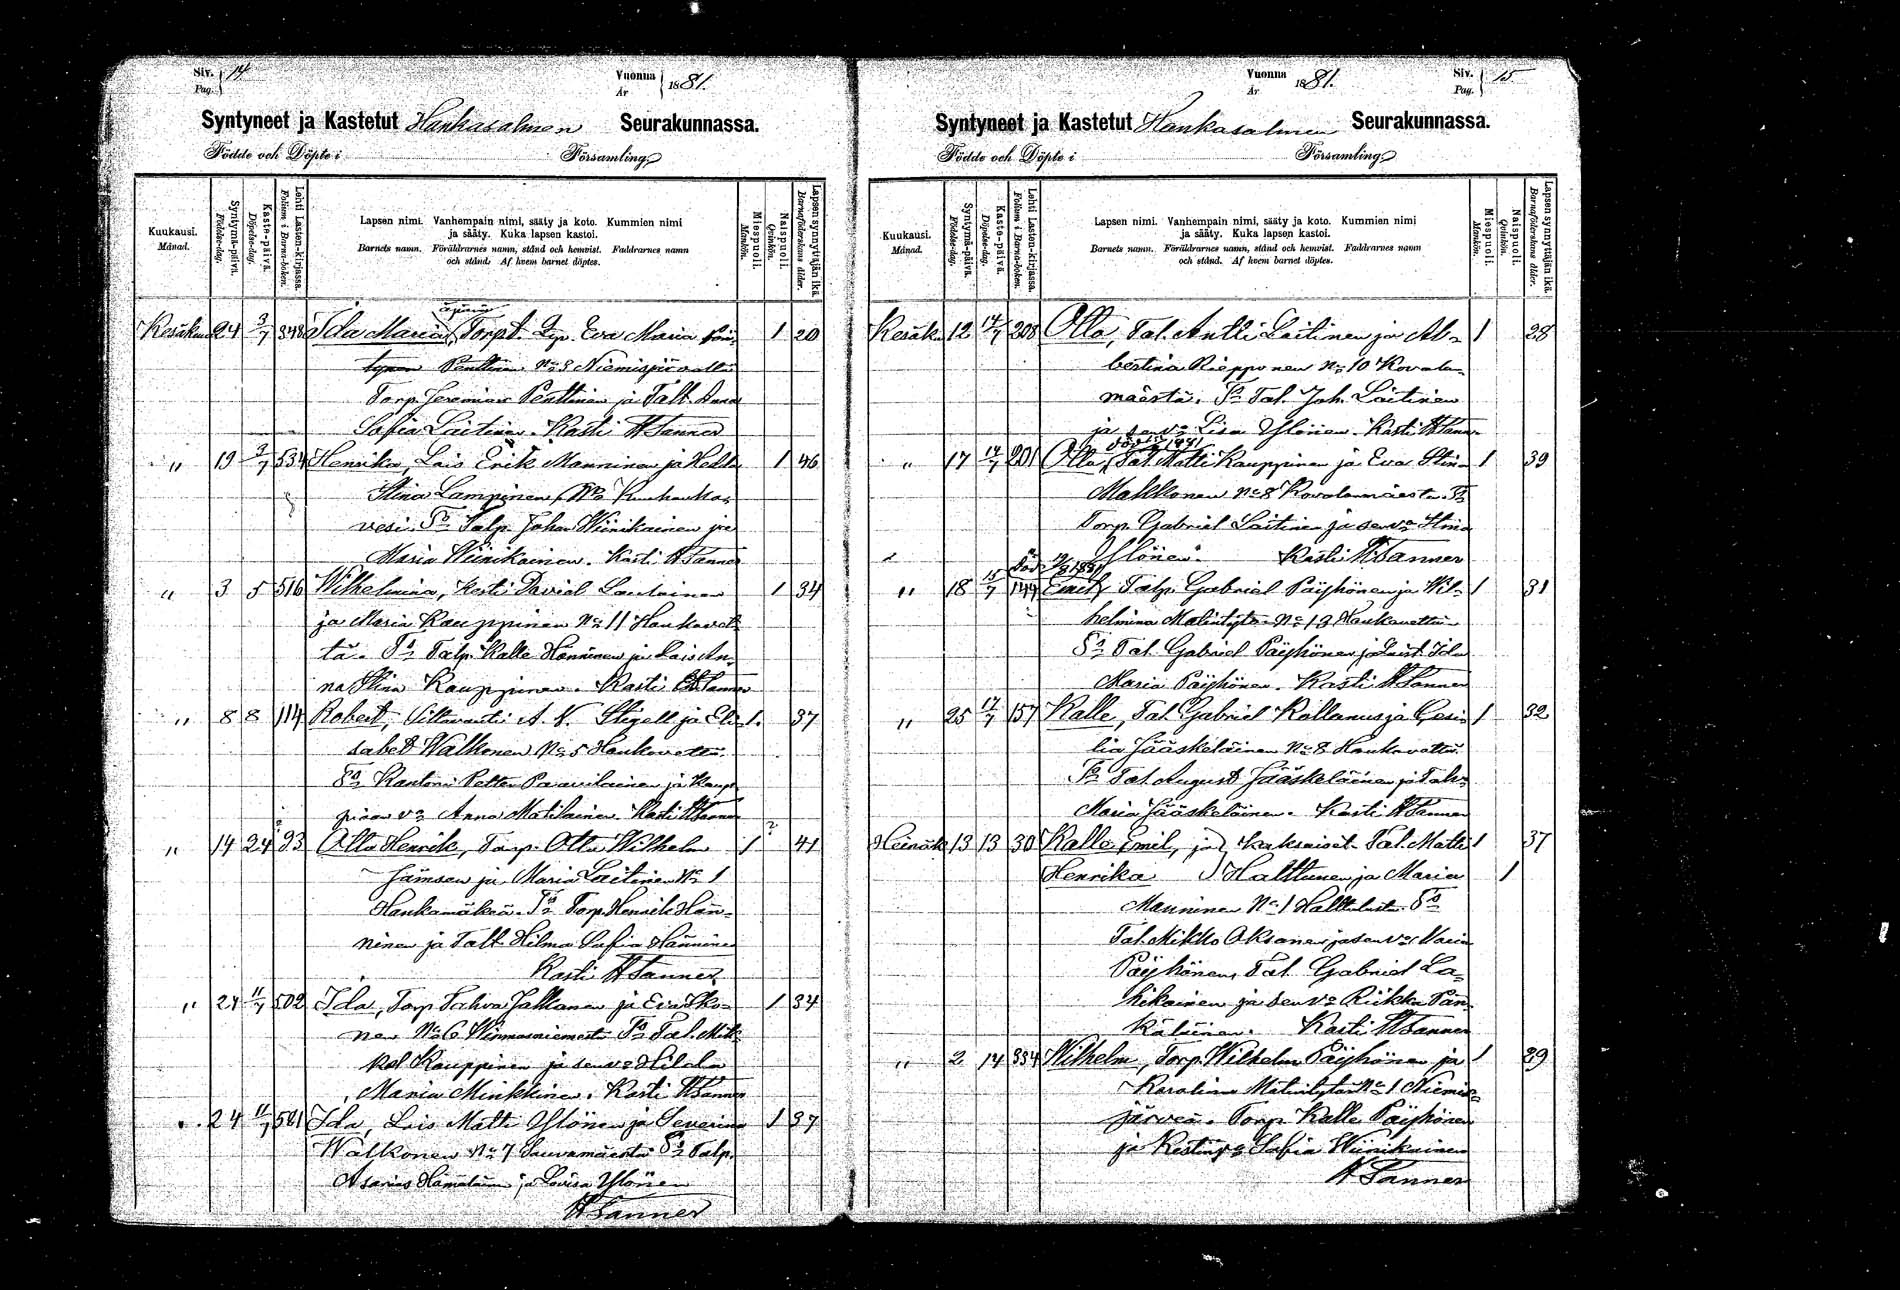 Siv. 14
Pag.
Vuonna 1881.
År
Syntyneet ja Kastetut Hankasalmen Seurakunnassa.
Födde och Döpte i Församling
Kuukausi. Månad.
Syntymä-päivä. Födelse-dag.
Kaste-päivä. Döpelse-dag.
Lehti Lasten-kirjassa. Folium i Barna-boken.
Lapsen nimi. Vanhempain nimi, sääty ja koto. Kummien nimi
ja sääty. Kuka lapsen kastoi.
Barnets namn. Föräldrarnes namn, stånd och hemvist. Faddrarnes namn
och stånd. Af hvem barnet döptes.
Miespuoli. Mankön.
Naispuoli. Qvinkön.
Lapsen synnyttäjän ikä. Barnaföderskans ålder.
Kesäkuu 24 3/7 348 Ida Maria, Torp. Eva Maria 1 20
Penttinen No 8 Niemisjärveltä
Torp. Jeremias Penttinen ja Talt. Anna
Sofia Laitinen. Kasti H Tanner
" 19 3/7 534 Henrika, Lois Erik Manninen ja Hedda 1 46
Stina Lampinen, No
vesi. To Talp. Johan Wiinikainen ja
Maria Wiinikainen. Kasti H Tanner
" 3 5 516 Wilhelmina, Kesti David Lautainen 1 34
ja Maria Kauppinen No 11 Hankavet-
tä. To Talp. Kalle Hänninen ja Lois An-
na Stina Kauppinen. Kasti H Tanner
" 8 8 114 Robert, A. N. Stigell ja Eli- 1. 37
sabet Walkonen No 5 Hankavettä.
To Kanttori Petter Paavilainen ja Kaup-
piaan vo Anna Matilainen. Kasti H Tanner
" 14 24 93 Otto Henrik, Torp. Otto Wilhelm 1 41
Jämsen ja Maria Laitinen No 1
Hankamäkeä. To Torp. Henrik Hän-
ninen ja Talt. Hilma Sofia Hänninen
Kasti H Tanner
" 24 11/7 502 Ida, Torp. Tahvo Jalkanen ja Eva 1 34
nen No 6 To Tal. Mik-
kel Kauppinen ja sen vo Hilda
Maria Minkkinen. Kasti H Tanner
" 24 11/7 501 Ida, Lois Matti Ylönen ja Severina 1 37
Walkonen No 7 Sauvamäestä To Talp.
Asarias Hämäläinen ja Lovisa Ylönen
H Tanner
Siv. 15
Pag.
Vuonna 1881.
År
Syntyneet ja Kastetut Hankasalmen Seurakunnassa.
Födde och Döpte i Församling
Kuukausi. Månad.
Syntymä-päivä. Födelse-dag.
Kaste-päivä. Döpelse-dag.
Lehti Lasten-kirjassa. Folium i Barna-boken.
Lapsen nimi. Vanhempain nimi, sääty ja koto. Kummien nimi
ja sääty. Kuka lapsen kastoi.
Barnets namn. Föräldrarnes namn, stånd och hemvist. Faddrarnes namn
och stånd. Af hvem barnet döptes.
Miespuoli. Mankön.
Naispuoli. Qvinkön.
Lapsen synnyttäjän ikä. Barnaföderskans ålder.
Kesäku 12 14/7 208 Otto, Tal. Antti Laitinen ja Al- 1 28
bertina Riepponen No 10 Kovala-
mäestä. To Tal. Joh. Laitinen
ja sen vo Lisa Ylönen. Kasti H Tanner
" 17 14/7 201 Otto, Tal. Matti Kauppinen ja Eva Stina 1 39
Makkonen No 8 Kovalanmäestä. To
Torp. Gabriel Laitinen ja sen vo Stina
Ylönen. Kasti H Tanner
" 18 15/7 144 Emil, Talp. Gabriel Päyhönen ja Wil- 1 31
helmina Matintytär No 13 Hankavettä
To Tal. Gabriel Päyhönen ja Ida
Maria Päyhönen. Kasti H Tanner
" 25 17/7 157 Kalle, Tal. Gabriel Rollanus ja Cesi- 1 32
lia Jääskeläinen No 8 Hankavettä.
To Tal. August Jääskeläinen ja
Maria Jääskeläinen. Kasti H Tanner
Heinäk 13 13 30 Kalle Emil, ja } Kaksoiset. Tal. Matti 1 37
Henrika } Halttunen ja Maria 1
Manninen No 1 To
Tal. Mikko Oksanen ja sen vo Maria
Päyhönen, Tal. Gabriel La-
hikainen ja sen vo Riikka Pän-
käläinen. Kasti H Tanner
" 2 14 334 Wilhelm, Torp. Wilhelm Päyhönen ja 1 29
Karolina Matintytär No 1 Niemis-
järveä. Torp. Kalle Päyhönen
ja Kestin vo Sofia Wiinikainen
H Tanner